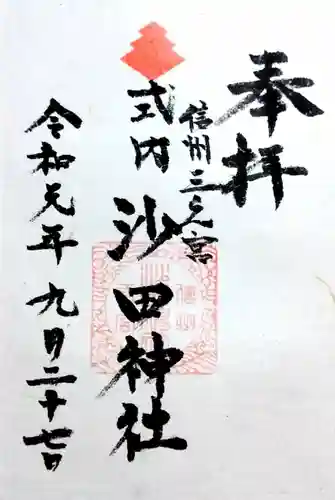 奉拝
信州三之宮
式内
沙田神社
令和元年九月二十七日